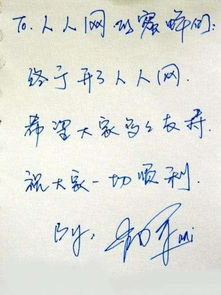 To. 人人网的赛
终于开了人人网.
希望大家多多支持
祝大家一切顺利.
By.